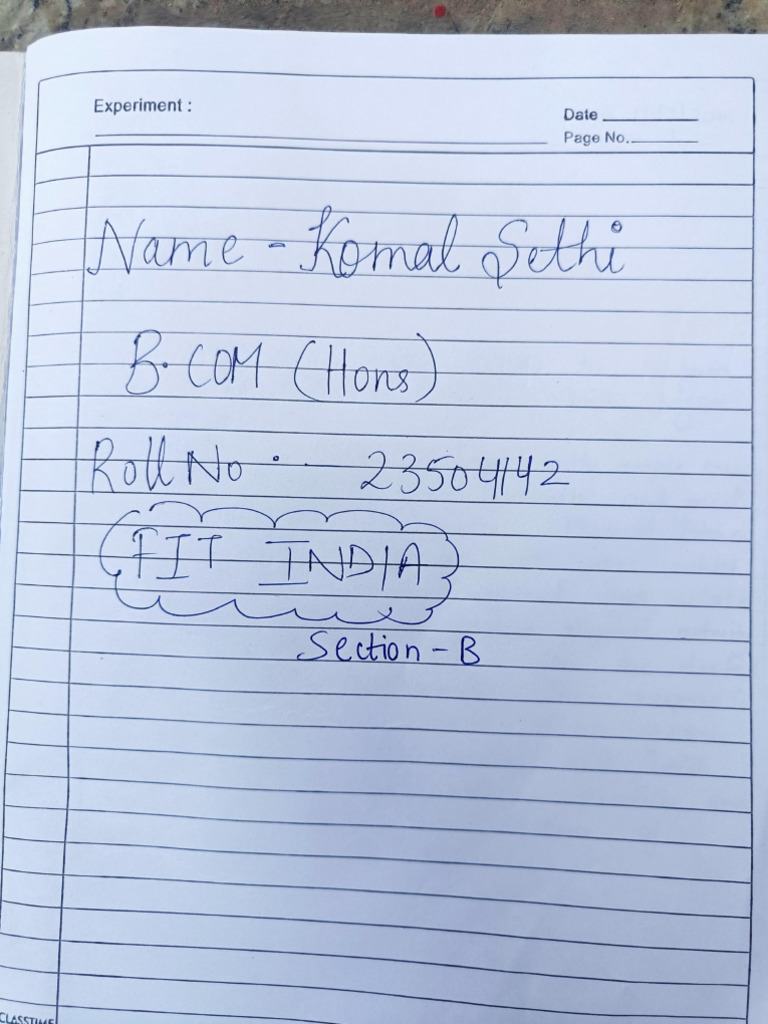 Experiment :
Date
Page No.
Name - Komal Sethi
B. COM (Hons)
Roll No . 23504142
FIT INDIA
Section - B
CLASSTIME